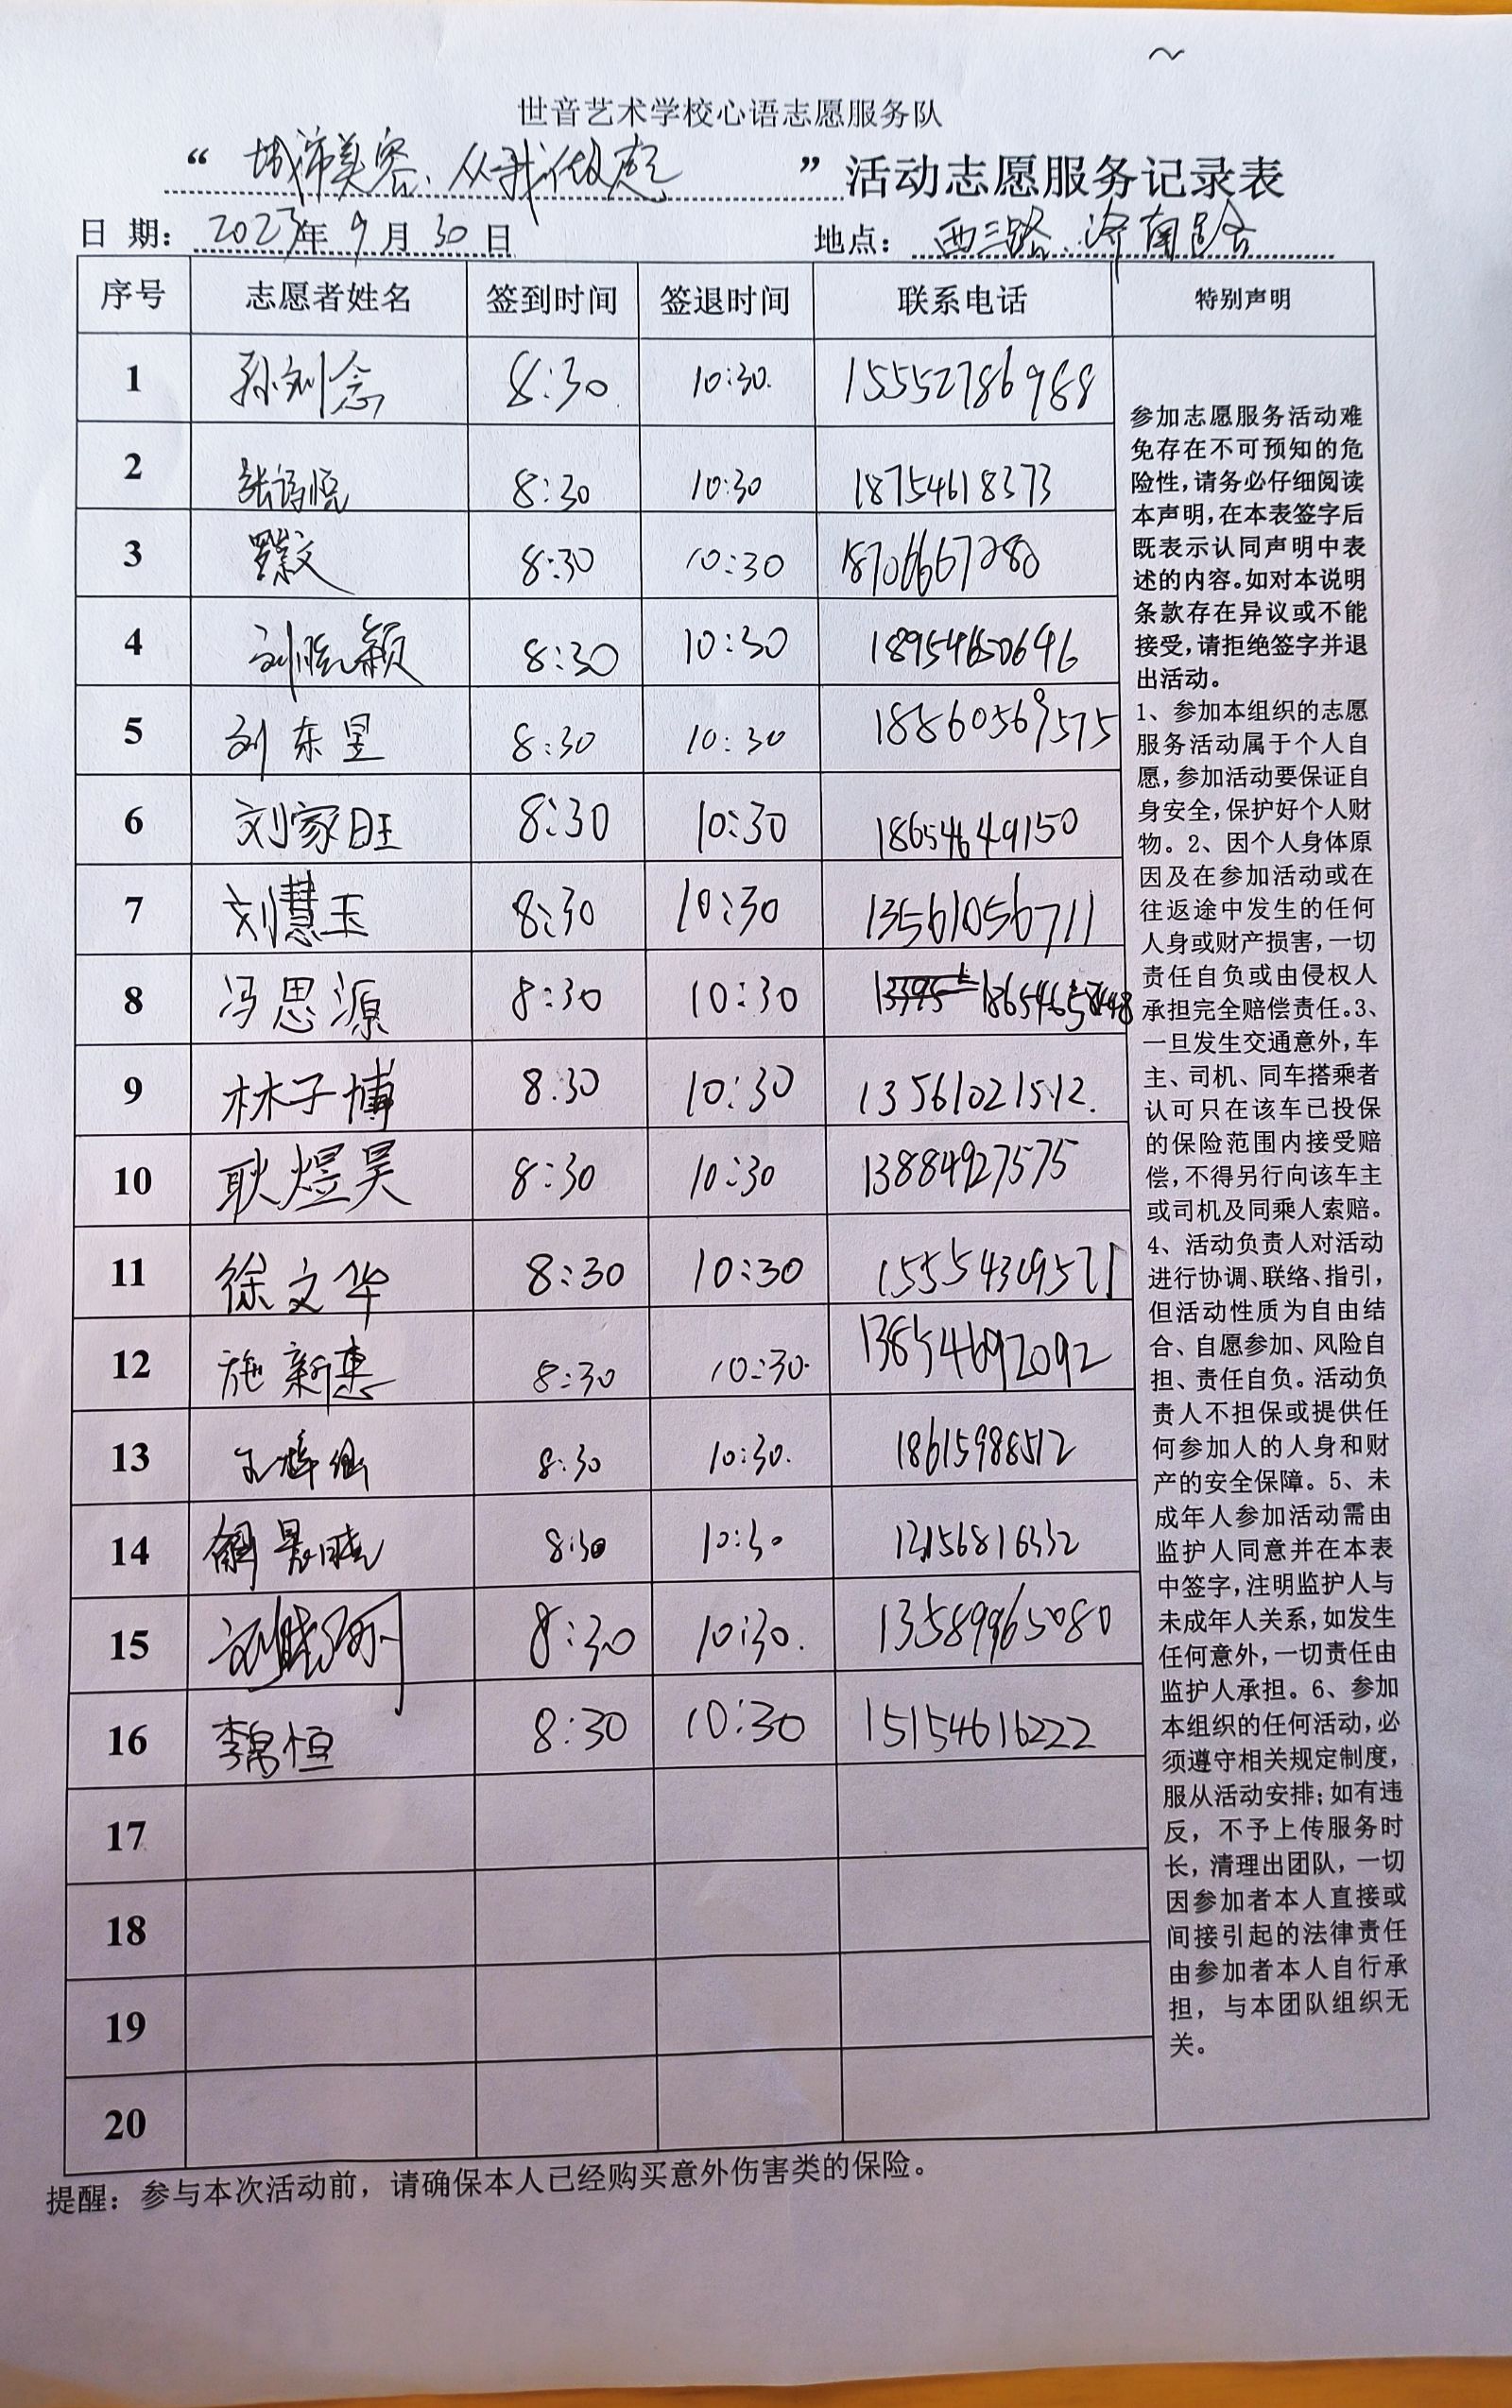 世音艺术学校心语志愿服务队
“城市美容、从我做起”活动志愿服务记录表
日 期：2023年9月30日 地点：西三路、济南路
序号 志愿者姓名 签到时间 签退时间 联系电话 特别声明
1 孙刘念 8:30 10:30. 15552786988
2 张诗悦 8:30 10:30 18754618373
3 8:30 10:30 18706667280
4 刘悦颖 8:30 10:30 18954650646
5 刘东昱 8:30 10:30 18860569575
6 刘家旺 8:30 10:30 18654649150
7 刘慧玉 8:30 10:30 13561056711
8 冯思源 8:30 10:30
9 林子博 8:30 10:30 13561021512.
10 耿煜昊 8:30 10:30 13884927575
11 徐文华 8:30 10:30 15554309571
12 施新惠 8:30 10:30. 13854692092
13 8:30 10:30. 18615988512
14 8:30 10:30
15 8:30 10:30. 13589965080
16 李常恒 8:30 10:30 15154616222
17
18
19
20
参加志愿服务活动难
免存在不可预知的危
险性，请务必仔细阅读
本声明，在本表签字后
既表示认同声明中表
述的内容。如对本说明
条款存在异议或不能
接受，请拒绝签字并退
出活动。
1、参加本组织的志愿
服务活动属于个人自
愿，参加活动要保证自
身安全，保护好个人财
物。2、因个人身体原
因及在参加活动或在
往返途中发生的任何
人身或财产损害，一切
责任自负或由侵权人
承担完全赔偿责任。3、
一旦发生交通意外，车
主、司机、同车搭乘者
认可只在该车已投保
的保险范围内接受赔
偿，不得另行向该车主
或司机及同乘人索赔。
4、活动负责人对活动
进行协调、联络、指引，
但活动性质为自由结
合、自愿参加、风险自
担、责任自负。活动负
责人不担保或提供任
何参加人的人身和财
产的安全保障。5、未
成年人参加活动需由
监护人同意并在本表
中签字，注明监护人与
未成年人关系，如发生
任何意外，一切责任由
监护人承担。6、参加
本组织的任何活动，必
须遵守相关规定制度，
服从活动安排；如有违
反，不予上传服务时
长，清理出团队，一切
因参加者本人直接或
间接引起的法律责任
由参加者本人自行承
担，与本团队组织无
关。
提醒：参与本次活动前，请确保本人已经购买意外伤害类的保险。